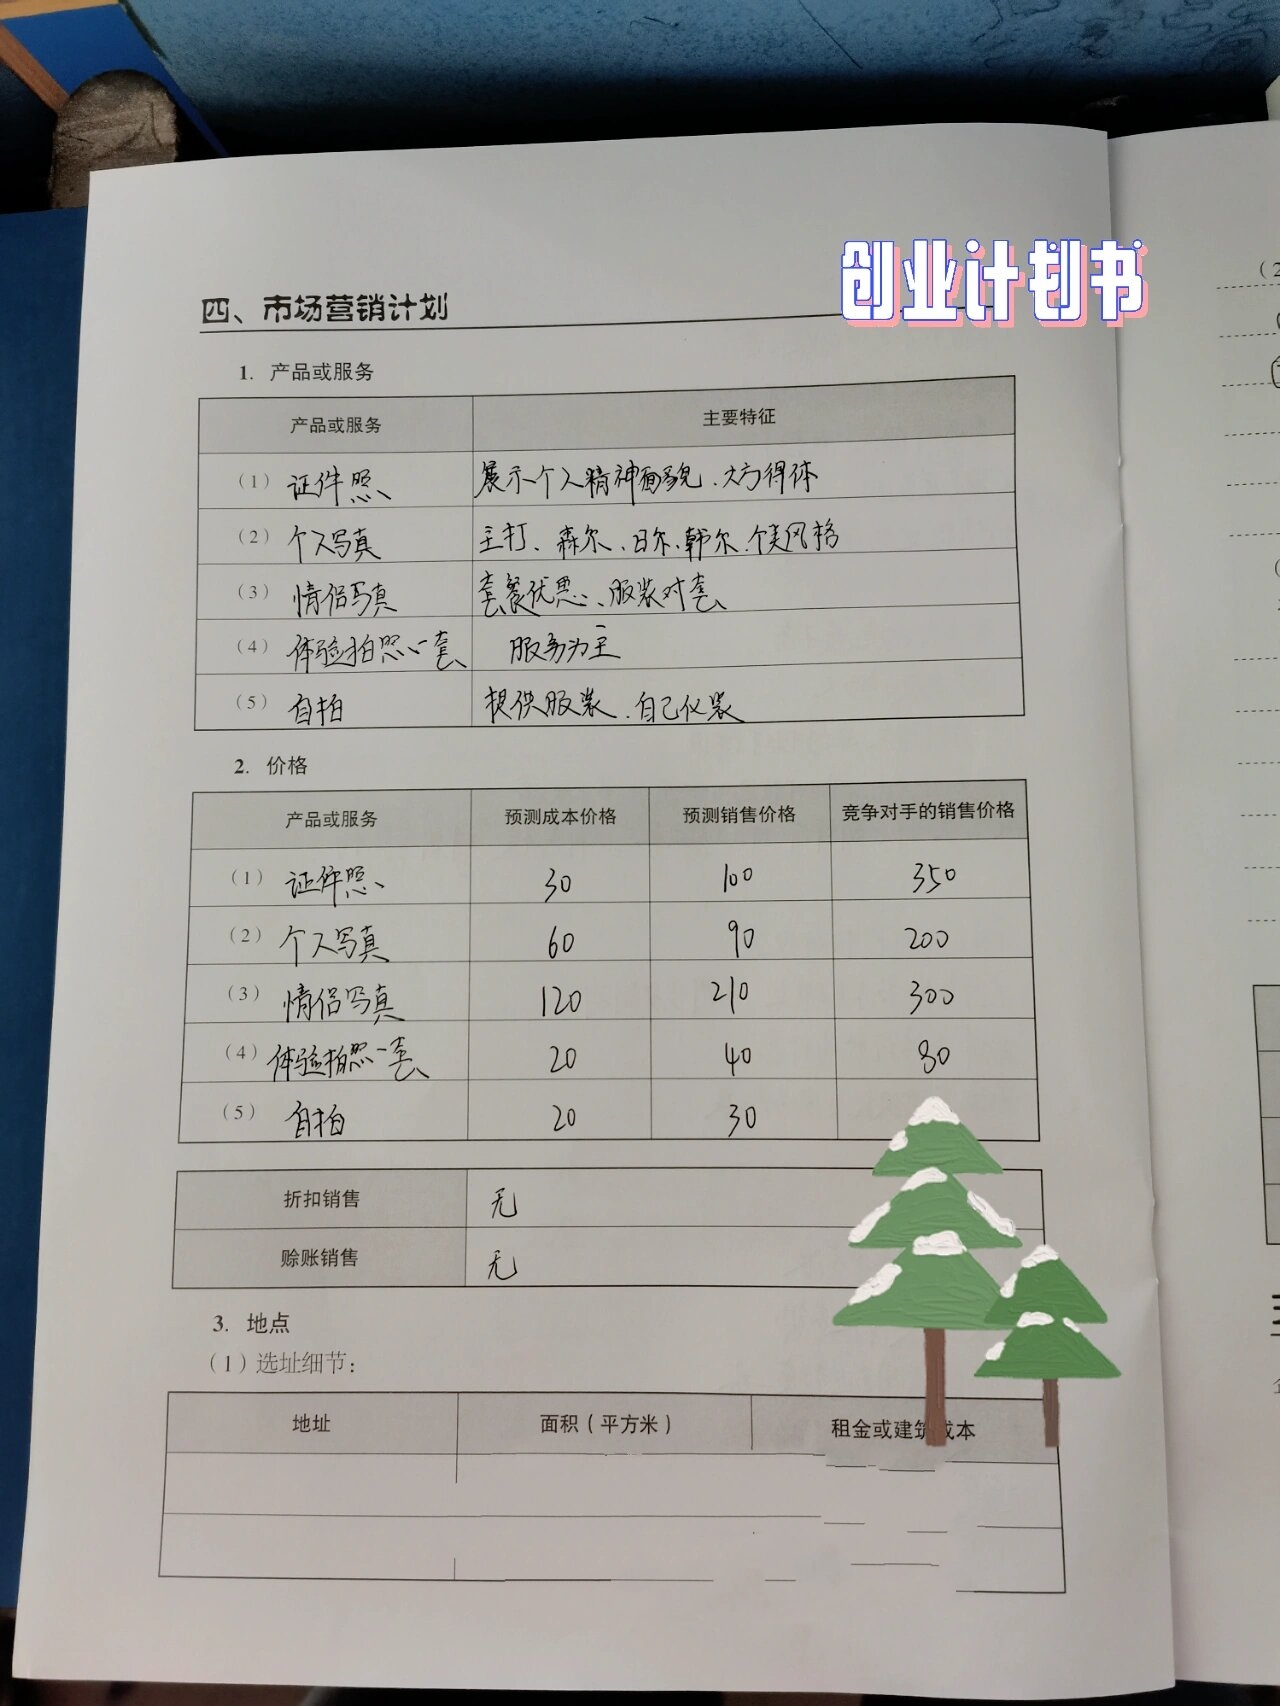 创业计划书
四、市场营销计划
1. 产品或服务
产品或服务 主要特征
(1) 证件照 展示个人精神面貌、大方得体
(2) 个人写真 主打、森尔、日尔、韩尔、个美风格
(3) 情侣写真 套餐优惠、服装对套
(4) 体验拍照一套 服务为主
(5) 自拍 提供服装、自己化装
2. 价格
产品或服务 预测成本价格 预测销售价格 竞争对手的销售价格
(1) 证件照 30 100 350
(2) 个人写真 60 90 200
(3) 情侣写真 120 210 300
(4) 体验拍照一套 20 40 80
(5) 自拍 20 30
折扣销售 无
赊账销售 无
3. 地点
(1) 选址细节:
地址 面积(平方米) 租金或建筑成本